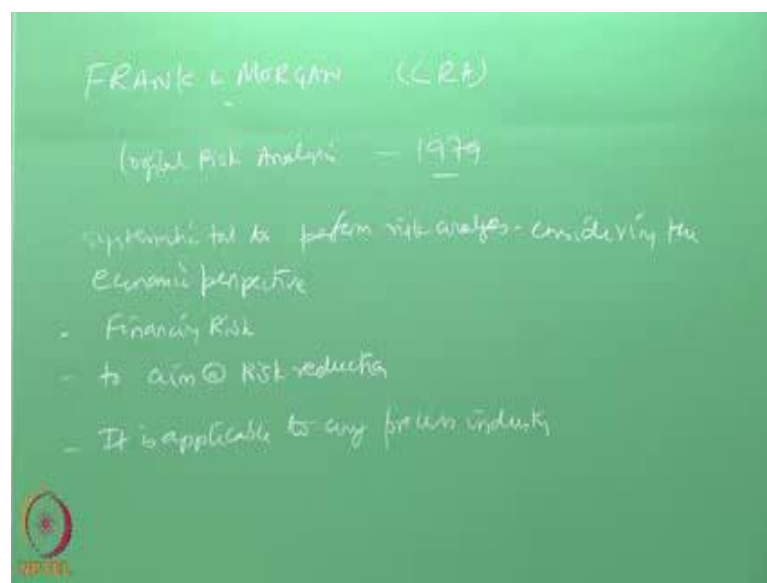 FRANK & MORGAN (LRA)
Logical Risk Analysis — 1979
systematic tool to perform risk analysis - considering the
economic perspective
- Financing Risk
- to aim @ Risk reduction
- It is applicable to any process industry
NPTEL